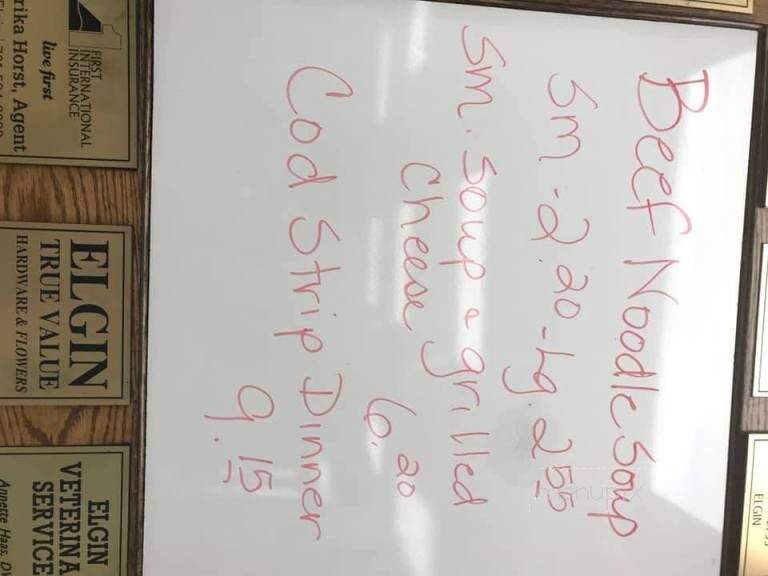 Beef Noodle Soup
Sm - 2.20 - Lg. 2.55
Sm. Soup & grilled
Cheese 6.20
Cod Strip Dinner
9.15
FIRST
INTERNATIONAL
INSURANCE
live first
rika Horst, Agent
ELGIN
TRUE VALUE
HARDWARE & FLOWERS
ELGIN
VETERINA
SERVICE
Annette Haas, DV
ELGIN
menupix